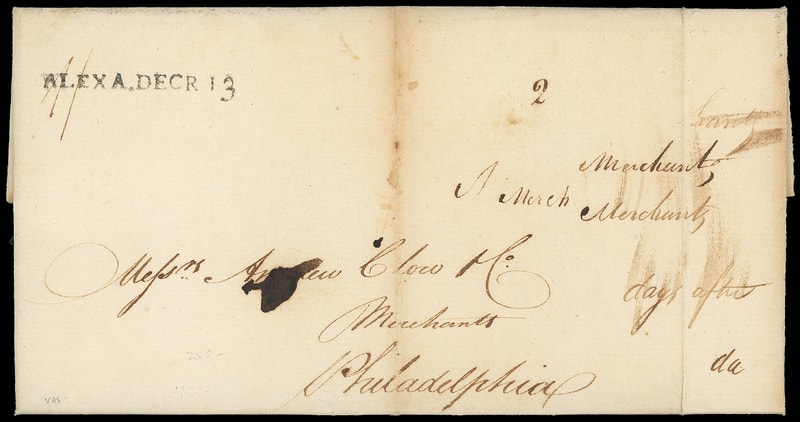 ALEXA. DECR 13
2
Merchants
A Merch Merchants
Messrs Andrew Clow & Co.
days after
Merchants
da
Philadelphia
VAS